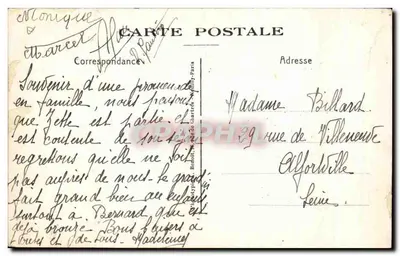 Monique
&
Marcel
CARTE POSTALE
Correspondance
Adresse
Souvenir d'une promenade
en famille, nous pensons
que est partie et
est contente de son
regrettons qu'elle ne soit
pas auprès de nous. Le grand air
fait grand bien aux enfants
surtout à Bernard qui est
déjà bronzé. Bons baisers à
toutes et de tous. Madeleine
Madame Billard
29 rue de Villeneuve
Alfortville
Seine